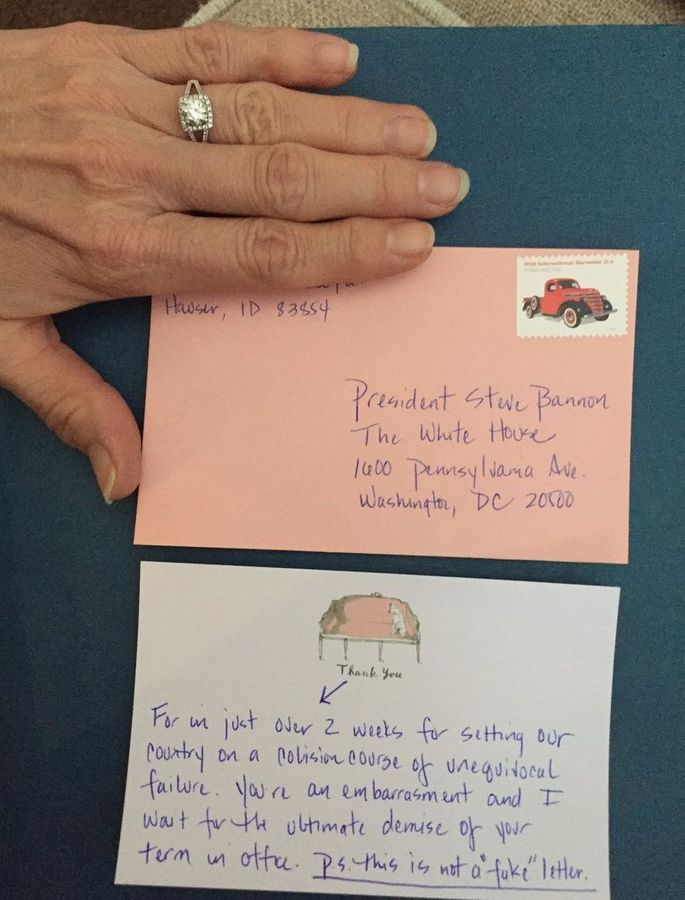 1938 International Harvester D-2
Hauser, ID 83854
President Steve Bannon
The White House
1600 Pennsylvania Ave.
Washington, DC 20500
Thank You
For in just over 2 weeks for setting our
country on a colision course of unequivocal
failure. You're an embarrasment and I
wait for the ultimate demise of your
term in office. p.s. this is not a "fake" letter.